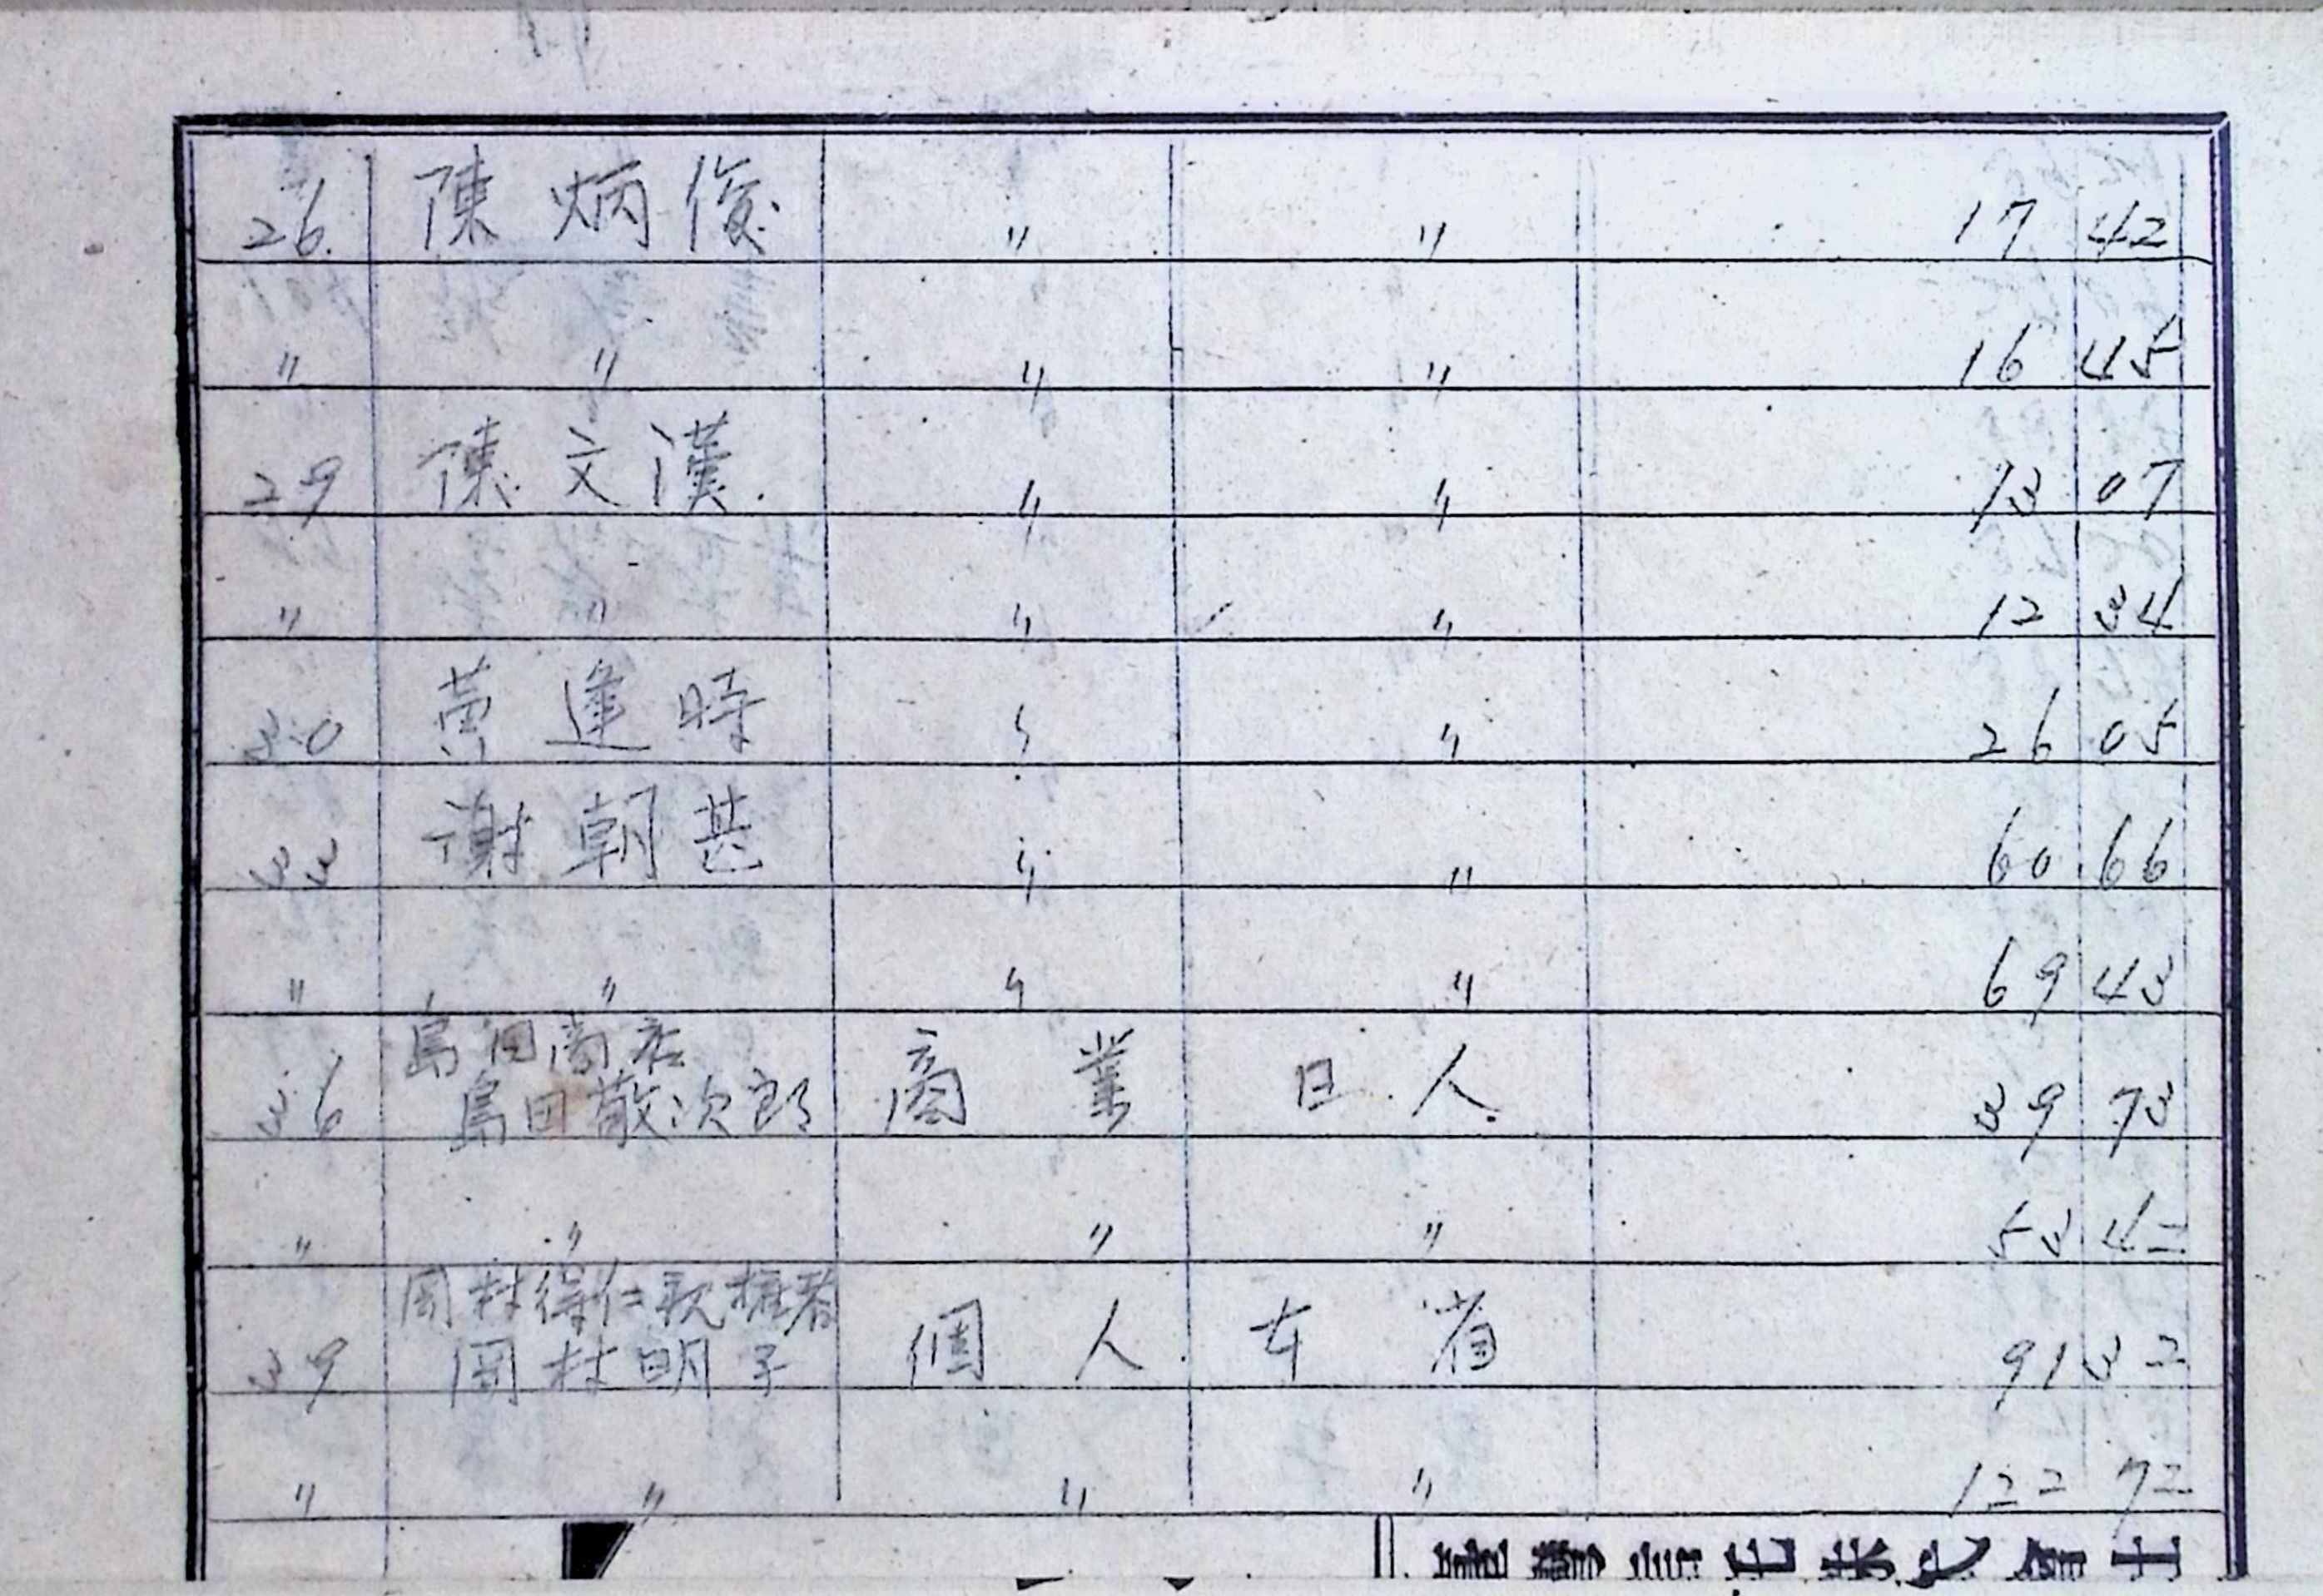 26. 陳炳俊 〃 〃 17 42
〃 〃 〃 〃 16 45
29 陳文漢 〃 〃 13 07
〃 〃 〃 〃 12 34
30 黄逢時 〃 〃 26 05
33 謝朝甚 〃 〃 60 66
〃 〃 〃 〃 69 43
島田商店
36 島田敬次郎 商業 日人 39 73
〃 〃 〃 〃 53 42
岡村得仁親権者
39 岡村明子 個人 本省 91 32
〃 〃 〃 〃 122 72